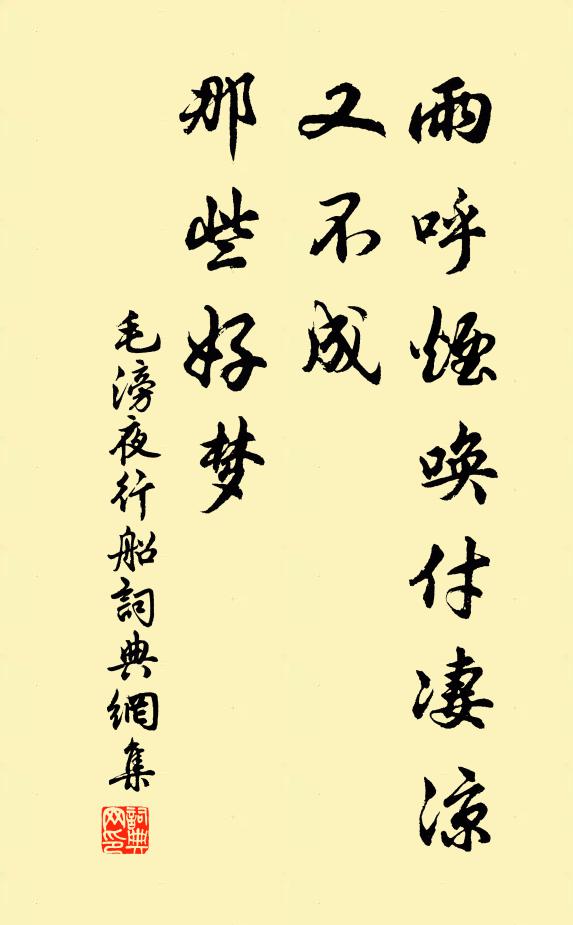 雨呼煙喚付凄涼
又不成
那些好梦
毛滂夜行船詞典網集
詞典網印